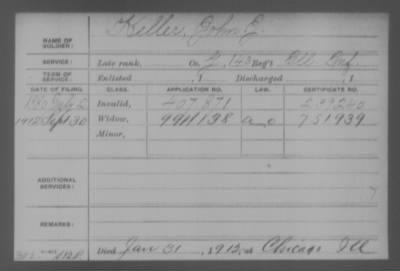 Keller, John E.
NAME OF SOLDIER:
SERVICE: Late rank, Co. F, 143 Reg't Ill. Inf.
TERM OF SERVICE: Enlisted , 1 Discharged , 1
DATE OF FILING. CLASS. APPLICATION NO. LAW. CERTIFICATE NO.
July 2 Invalid, 407,871
1912 Sept 30 Widow, 991138 a o 751939
Minor,
ADDITIONAL SERVICES:
REMARKS:
Died Jan 31, 1912, at Chicago Ill